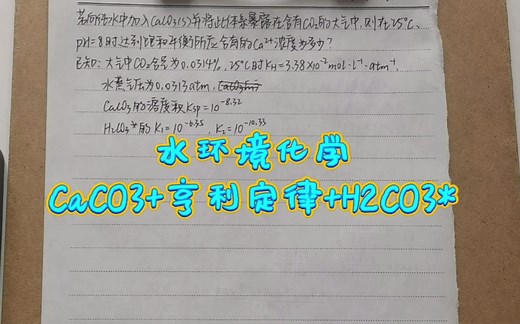 若向纯水中加入CaCO3(s)并将此体系暴露在含有CO2的大气中,则在25℃、
pH=8时达到饱和平衡所应含有的Ca2+浓度为多少?
已知:大气中CO2含量为0.0314%,25℃时KH=3.38×10-2mol·L-1·atm-1,
水蒸气压为0.0313atm,
CaCO3的溶度积Ksp=10-8.32
H2CO3*的K1=10-6.35,K2=10-10.33
水环境化学
CaCO3+亨利定律+H2CO3*